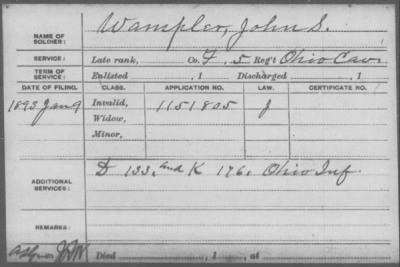 Wampler, John S.
NAME OF
SOLDIER:
SERVICE: Late rank, Co. F, 5 Reg't Ohio Cav.
TERM OF
SERVICE: Enlisted , 1 Discharged , 1
DATE OF FILING. CLASS. APPLICATION NO. LAW. CERTIFICATE NO.
1893 Jan 9 Invalid, 1151805 J
Widow,
Minor,
D 133, and K 196, Ohio Inf
ADDITIONAL
SERVICES:
REMARKS:
Died , 1 , at